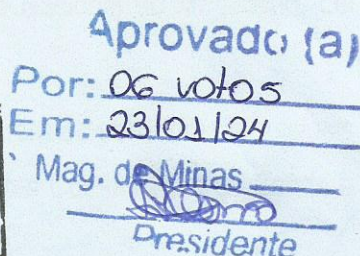 Aprovado (a)
Por: 06 votos
Em: 23/01/24
Mag. de Minas
Presidente